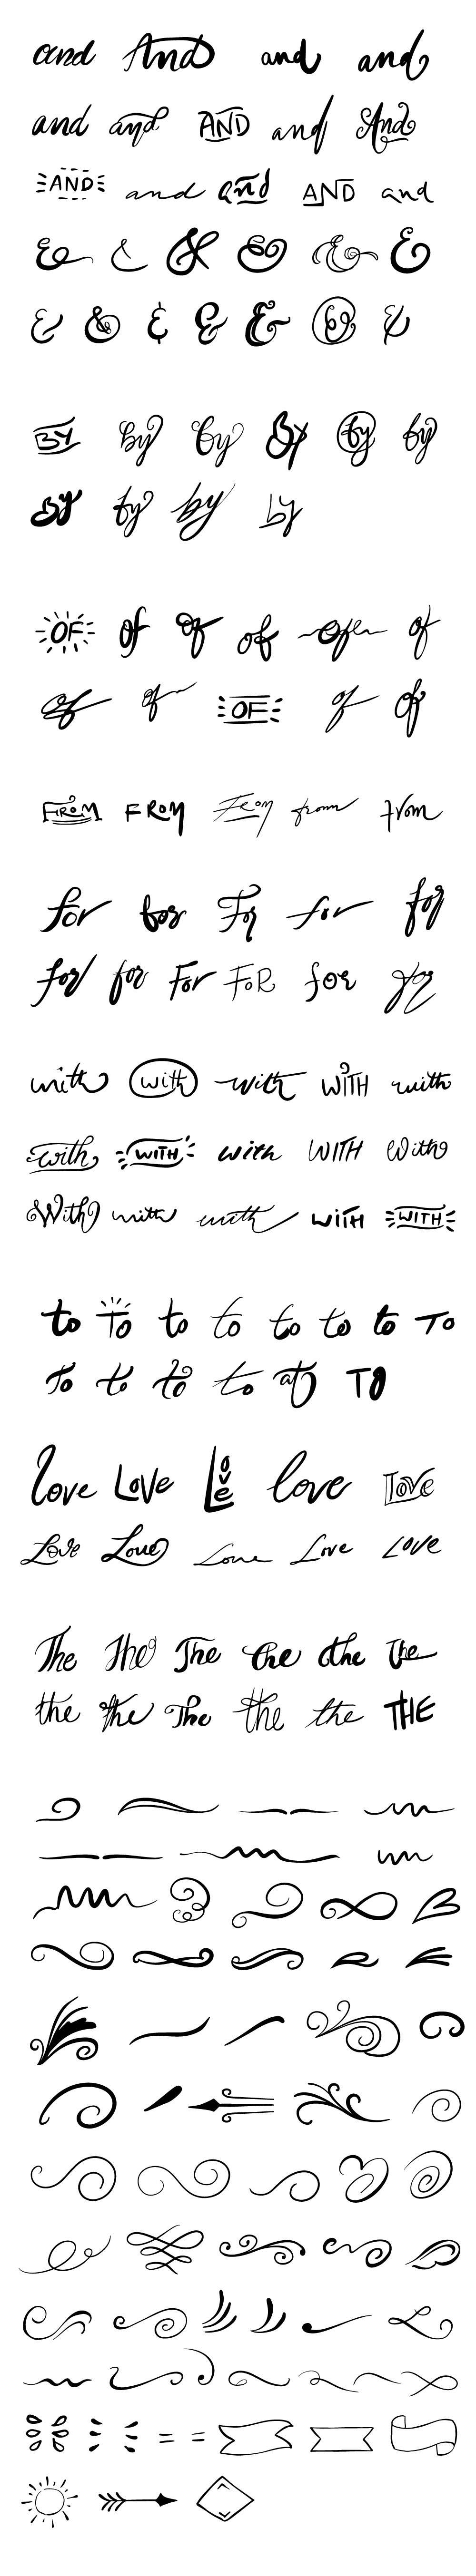 and And and and
and and AND and And
AND and and AND and
& & & & & &
& & & & & & &
BY by by By by by
By by by by
OF of of of of of
of of OF of of
FROM FROM From from from
for for For for for
for for For FOR for for
with with with WITH with
with WITH with WITH With
With with with WITH WITH
to To to to to to to To
To to to to at TO
love Love Love love Love
Love Love Love Love Love
The The The the the the
the the The the the THE